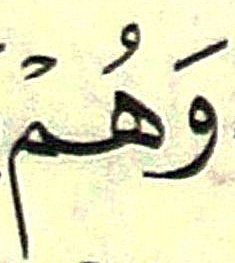 وَهُمْ